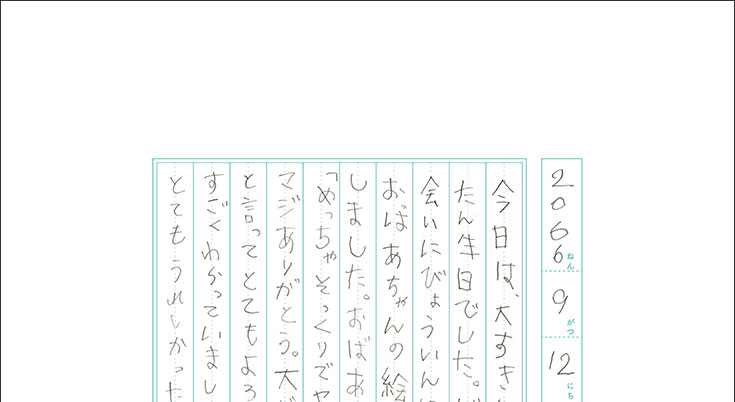 2066ねん9がつ12にち
今日は、大すき
たん生日でした。
会いにびょういんに
おばあちゃんの絵
しました。おばあ
「めっちゃそっくりでヤ
マジありがとう。大
と言ってとてもよろ
すごくわかっていまし
とてもうれしかった